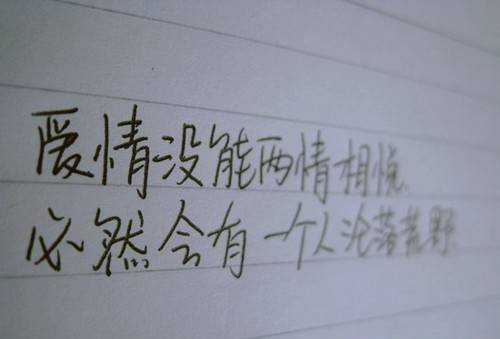 爱情没能两情相悦.
必然会有一个人沦落荒野.